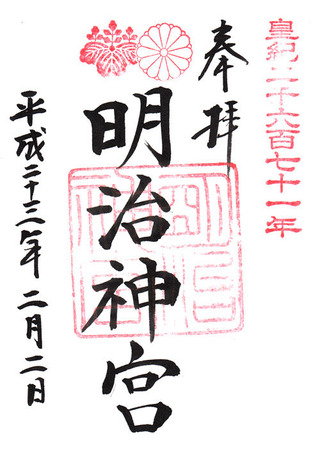 皇紀二千六百七十一年
奉拝
明治神宮
平成二十三年二月二日